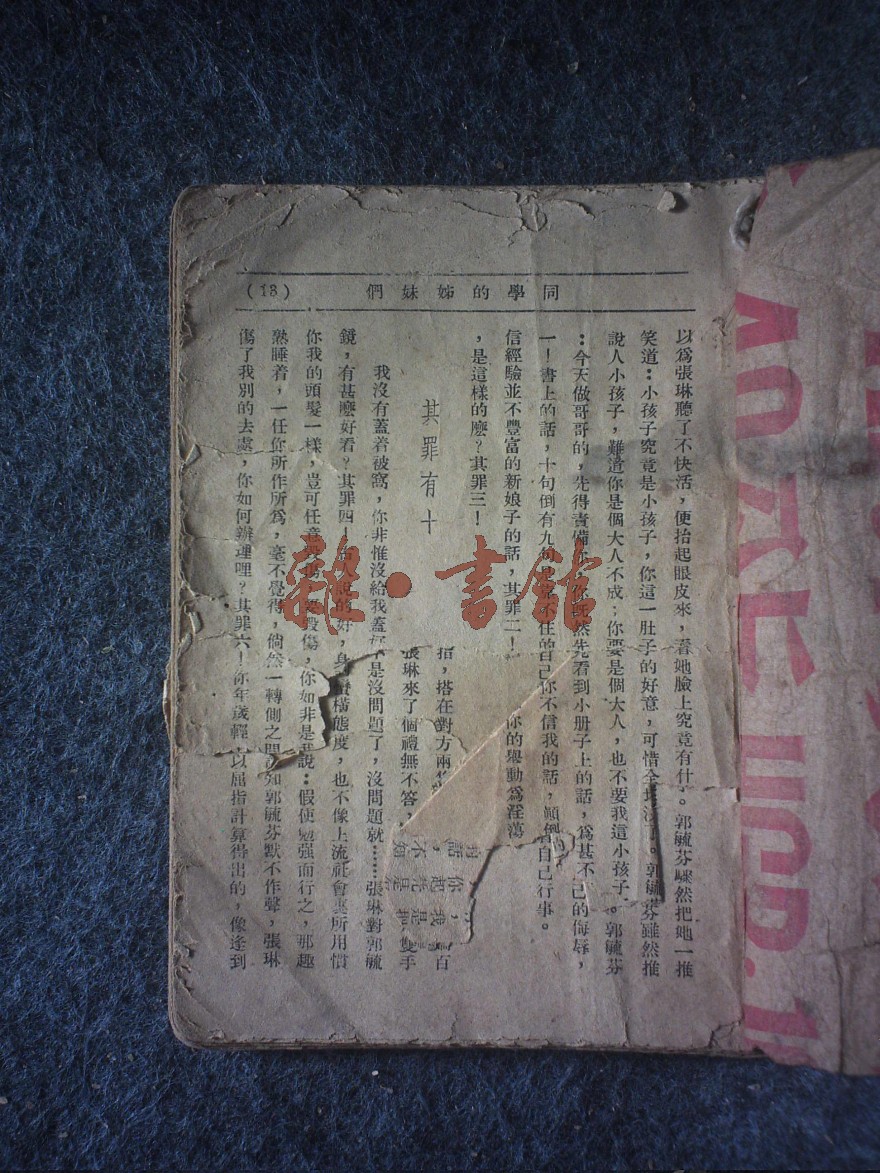 同學的姊妹們
（18）
以爲張琳聽了不快活，便抬起眼皮來，看她臉上究竟有什。郭毓芬驟然把她一推
笑道：小孩子究竟是小孩子，你這一肚子的好意，可惜全。郭毓芬雖然推
說人小孩子，難道你是個大人不成；你要是個大人，也不要我這小孩子。郭毓芬
：今天做哥哥的，先得責備你，你既然先看到小册子上的話，爲甚不己的侮辱，
一！書上的話，十句倒有九句是靠不住的自己你不信我的話，顛倒自己行事。
信經驗並不豐富的新娘子的話，其罪二！你的舉動爲淫蕩
，是這樣的麼？其罪三！
其罪有十
我沒有蓋着被窩，你非惟沒給我蓋是沒問題了，沒問題就……張琳對郭毓
張琳來了個禮無不答，
搭在對方兩
鏡，有甚麼好看？其罪四！說的好，身橫態度，也不像上流社會裏所用慣
你我的頭髮一樣，豈可任意毀傷，要毀傷，你如非是我說：假使勉强而行之，那趣
熟睡着，一任你所作所爲，毫不覺得，倘然一轉側之間知郭毓芬默不作聲，張琳
傷了我別的去處，你如何辦理哩？其罪六！你年歲輕以屈指計算得出的，像逢到
雜·書館